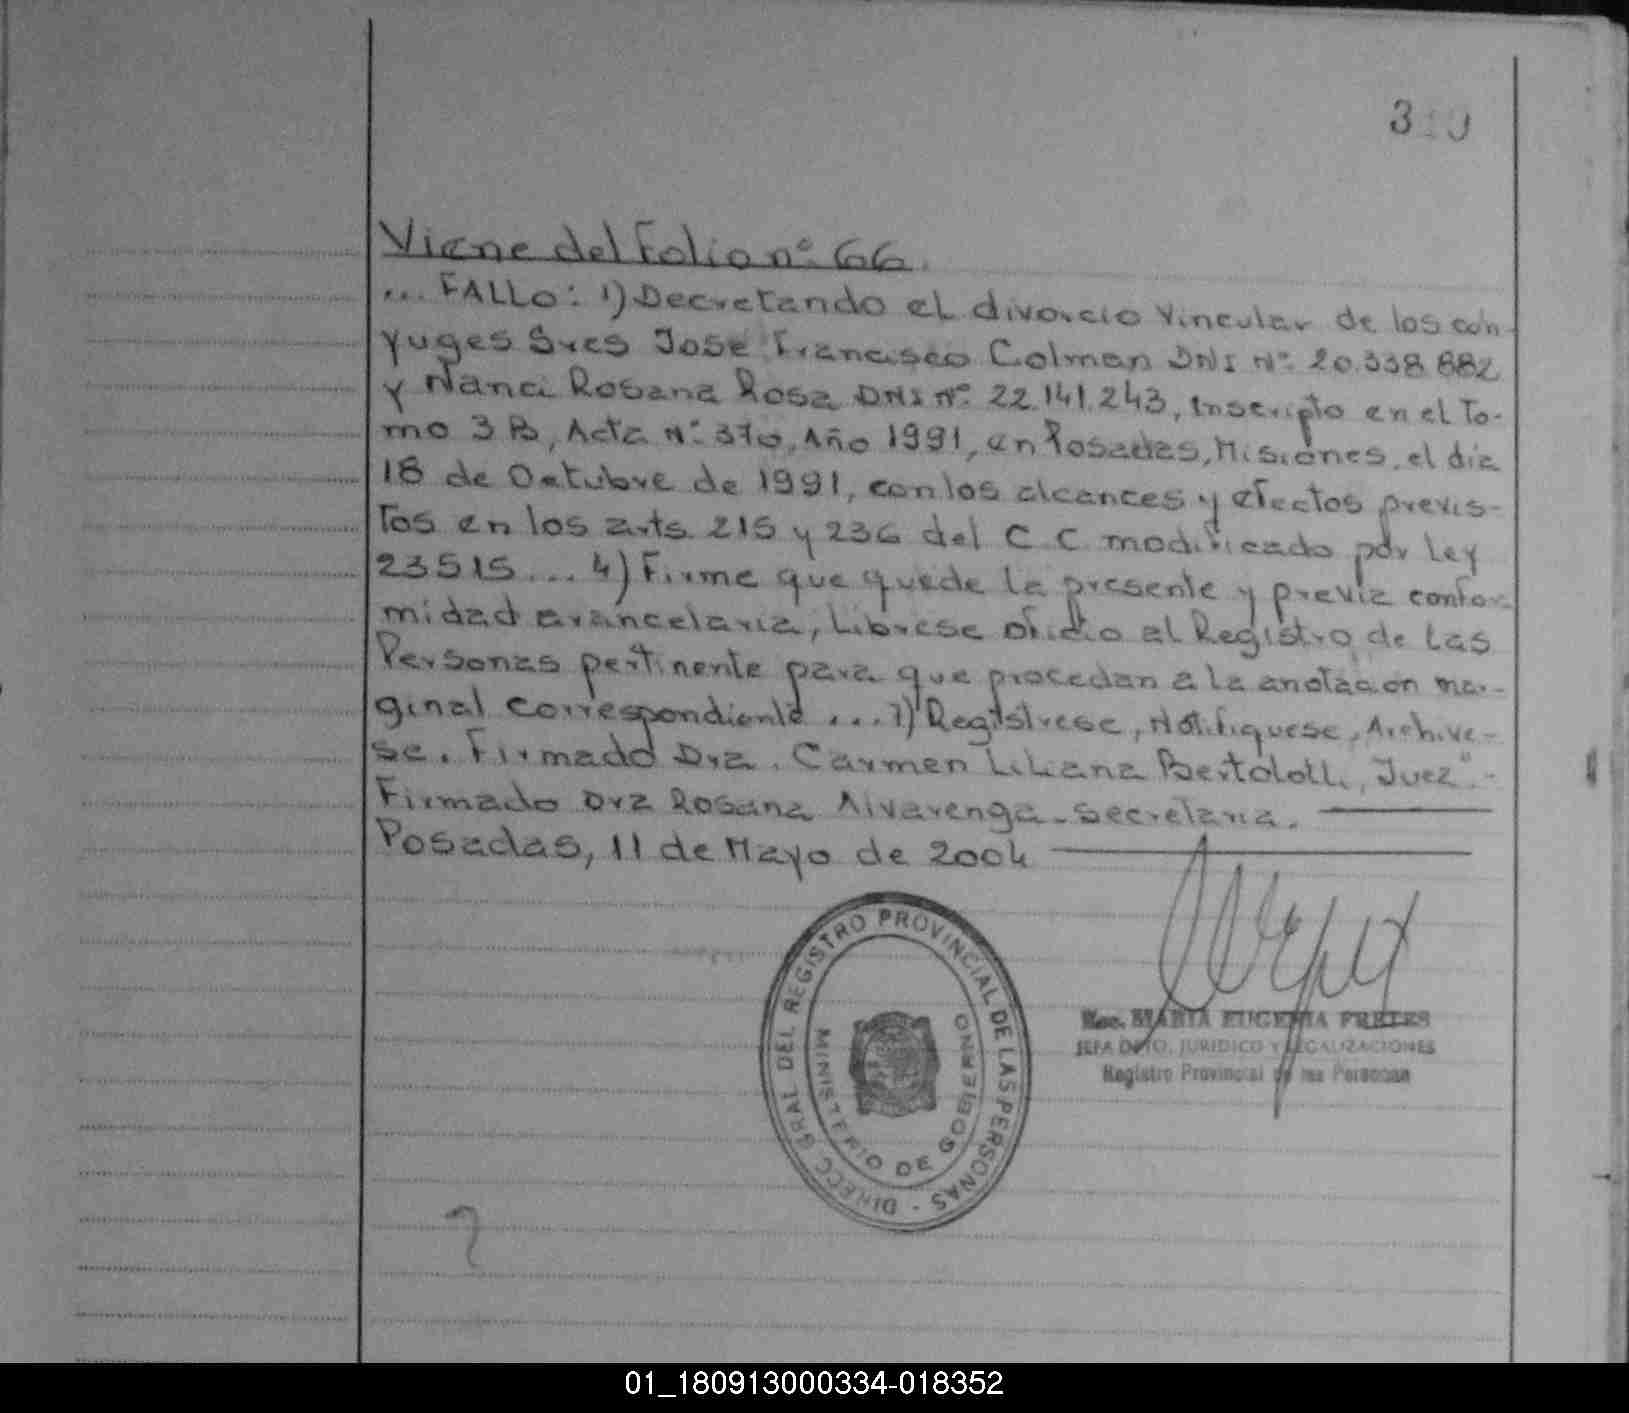 Viene del Folio nº 66.
... FALLO: 1) Decretando el divorcio vincular de los con-
yuges Sres Jose Francisco Colman DNI Nº 20.338.882
y Nanci Rosana Rosa DNI Nº 22.141.243, inscripto en el To-
mo 3 B, Acta Nº 370, Año 1991, en Posadas, Misiones, el dia
18 de Octubre de 1991, con los alcances y efectos previs-
tos en los arts. 215 y 236 del C.C. modificado por Ley
23515... 4) Firme que quede la presente y previa confor-
midad arancelaria, Librese oficio al Registro de las
Personas pertinente para que procedan a la anotacion mar-
ginal correspondiente ... 7) Registrese, Notifiquese, Archive-
se. Firmado Dra. Carmen Liliana Bertolotti, Juez".-
Firmado Dra Rosana Alvarenga - Secretaria.
Posadas, 11 de Mayo de 2004
DIRECC GRAL DEL REGISTRO PROVINCIAL DE LAS PERSONAS -
MINISTERIO DE GOBIERNO
MARIA EUGENIA FRETES
JEFA DPTO. JURIDICO Y LEGALIZACIONES
Registro Provincial de las Personas
01_180913000334-018352